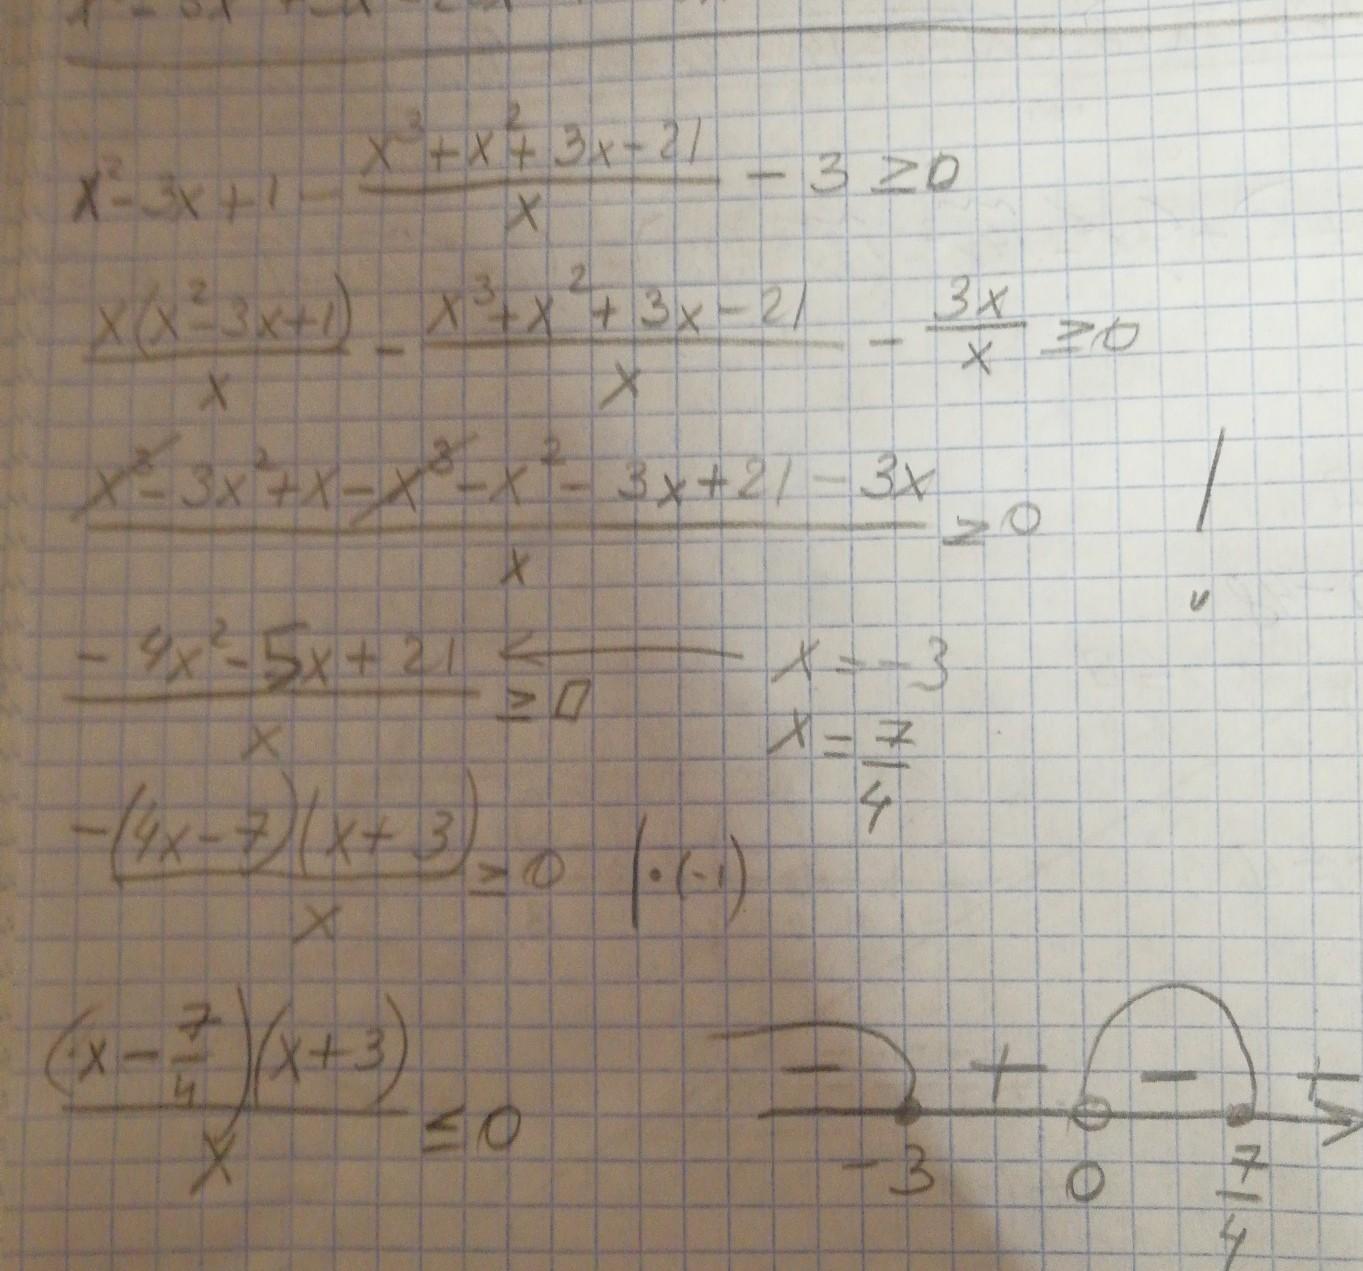 x² - 3x + 1 - (x³ + x² + 3x - 21)/x - 3 ≥ 0
x(x² - 3x + 1)/x - (x³ + x² + 3x - 21)/x - 3x/x ≥ 0
(x³ - 3x² + x - x³ - x² - 3x + 21 - 3x)/x ≥ 0
(- 4x² - 5x + 21)/x ≥ 0 ← x = -3
x = 7/4
-(4x - 7)(x + 3)/x ≥ 0 | · (-1)
(x - 7/4)(x + 3)/x ≤ 0
- + - +
-3 0 7/4